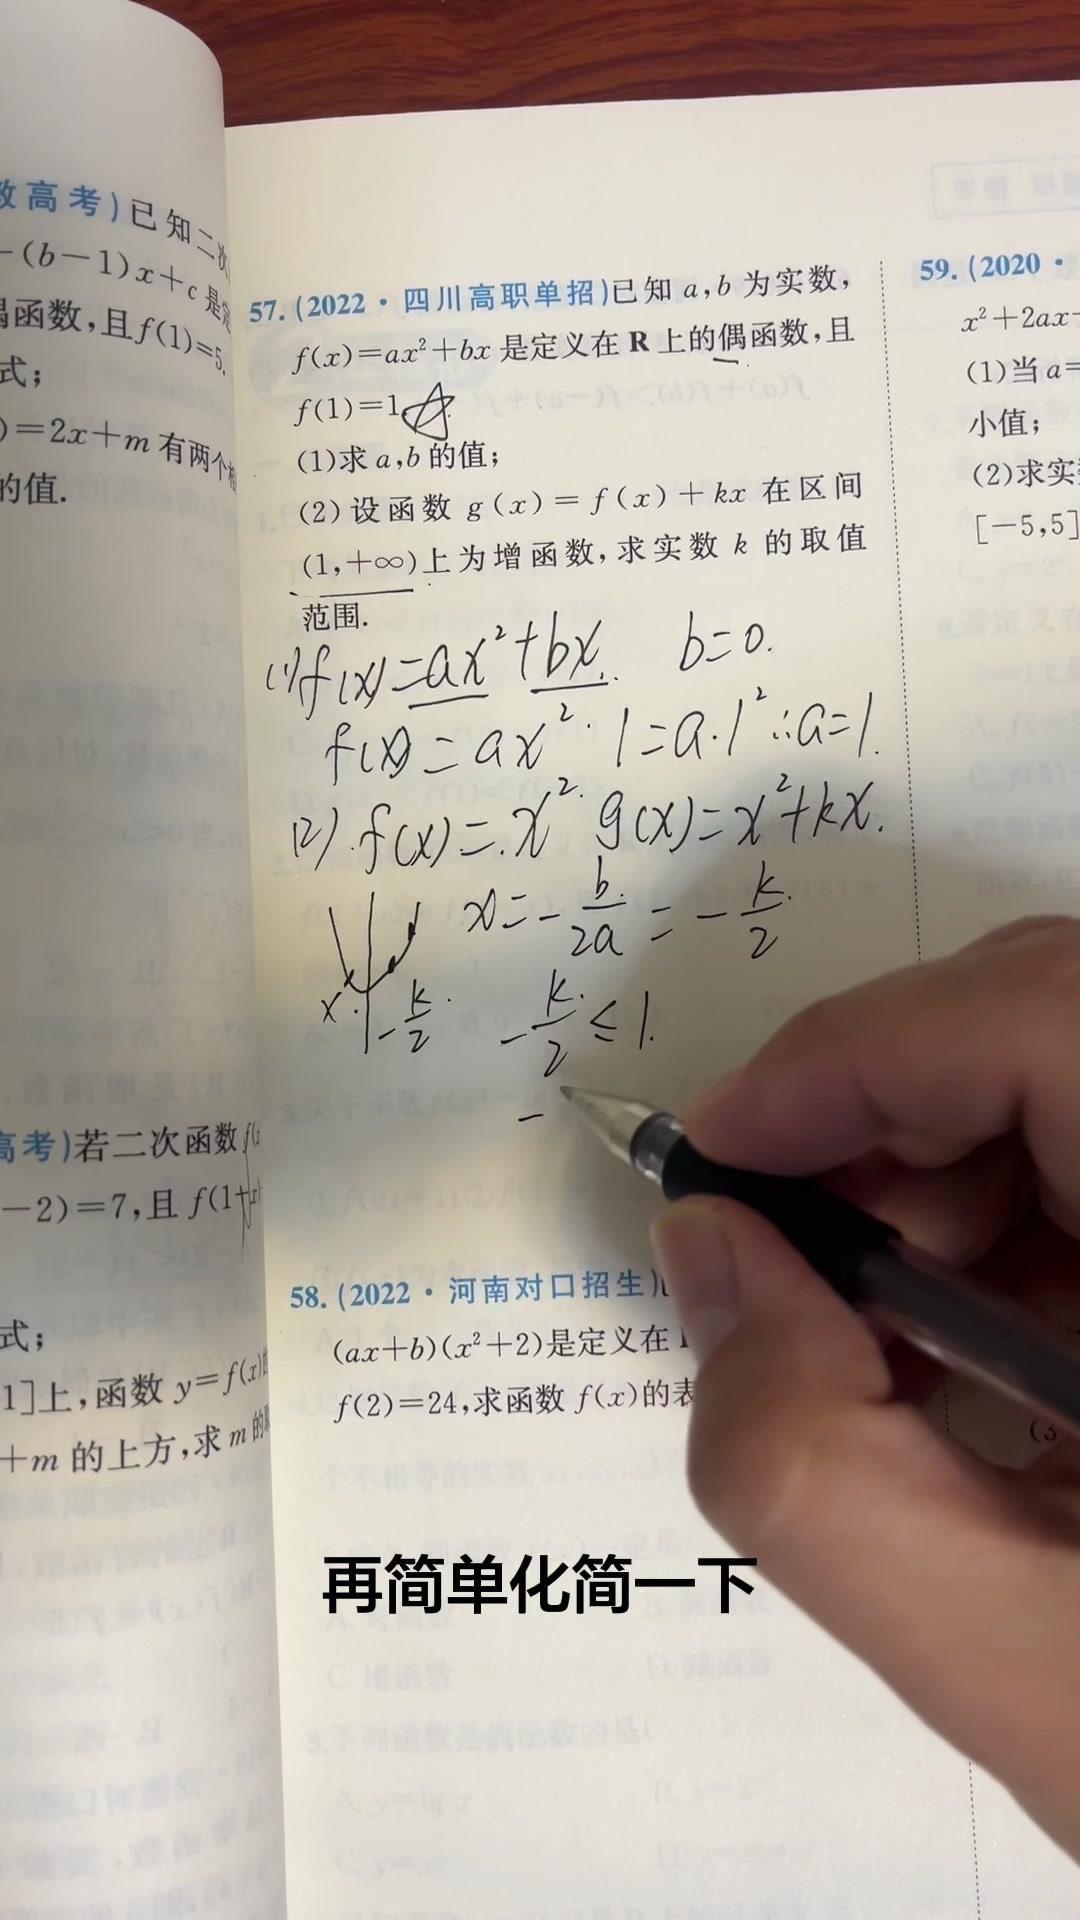 数高考)已知二次
-(b-1)x+c是定
偶函数,且f(1)=5.
式;
)=2x+m有两个相
的值.
高考)若二次函数f(x
-2)=7,且f(1+x)
式;
1]上,函数y=f(x)的
+m的上方,求m的取
57.(2022·四川高职单招)已知a,b为实数,
f(x)=ax²+bx是定义在R上的偶函数,且
f(1)=1.
(1)求a,b的值;
(2)设函数g(x)=f(x)+kx在区间
(1,+∞)上为增函数,求实数k的取值
范围.
(1)f(x)=ax²+bx. b=0.
f(x)=ax². 1=a·1² ∴a=1.
(2).f(x)=x². g(x)=x²+kx.
x=-b/2a=-k/2
x. -k/2. -k/2≤1.
-
58.(2022·河南对口招生)
(ax+b)(x²+2)是定义在
f(2)=24,求函数f(x)的表
59.(2020·
x²+2ax-
(1)当a=
小值;
(2)求实
[-5,5]
(3
再简单化简一下